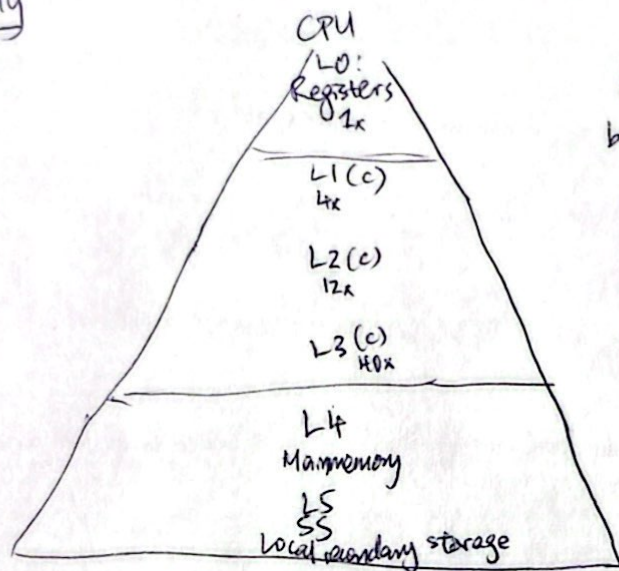 CPU
L0:
Registers
1x
b
L1 (c)
4x
L2 (c)
12x
L3 (c)
40x
L4
Mainmemory
L5
SS
Local secondary storage